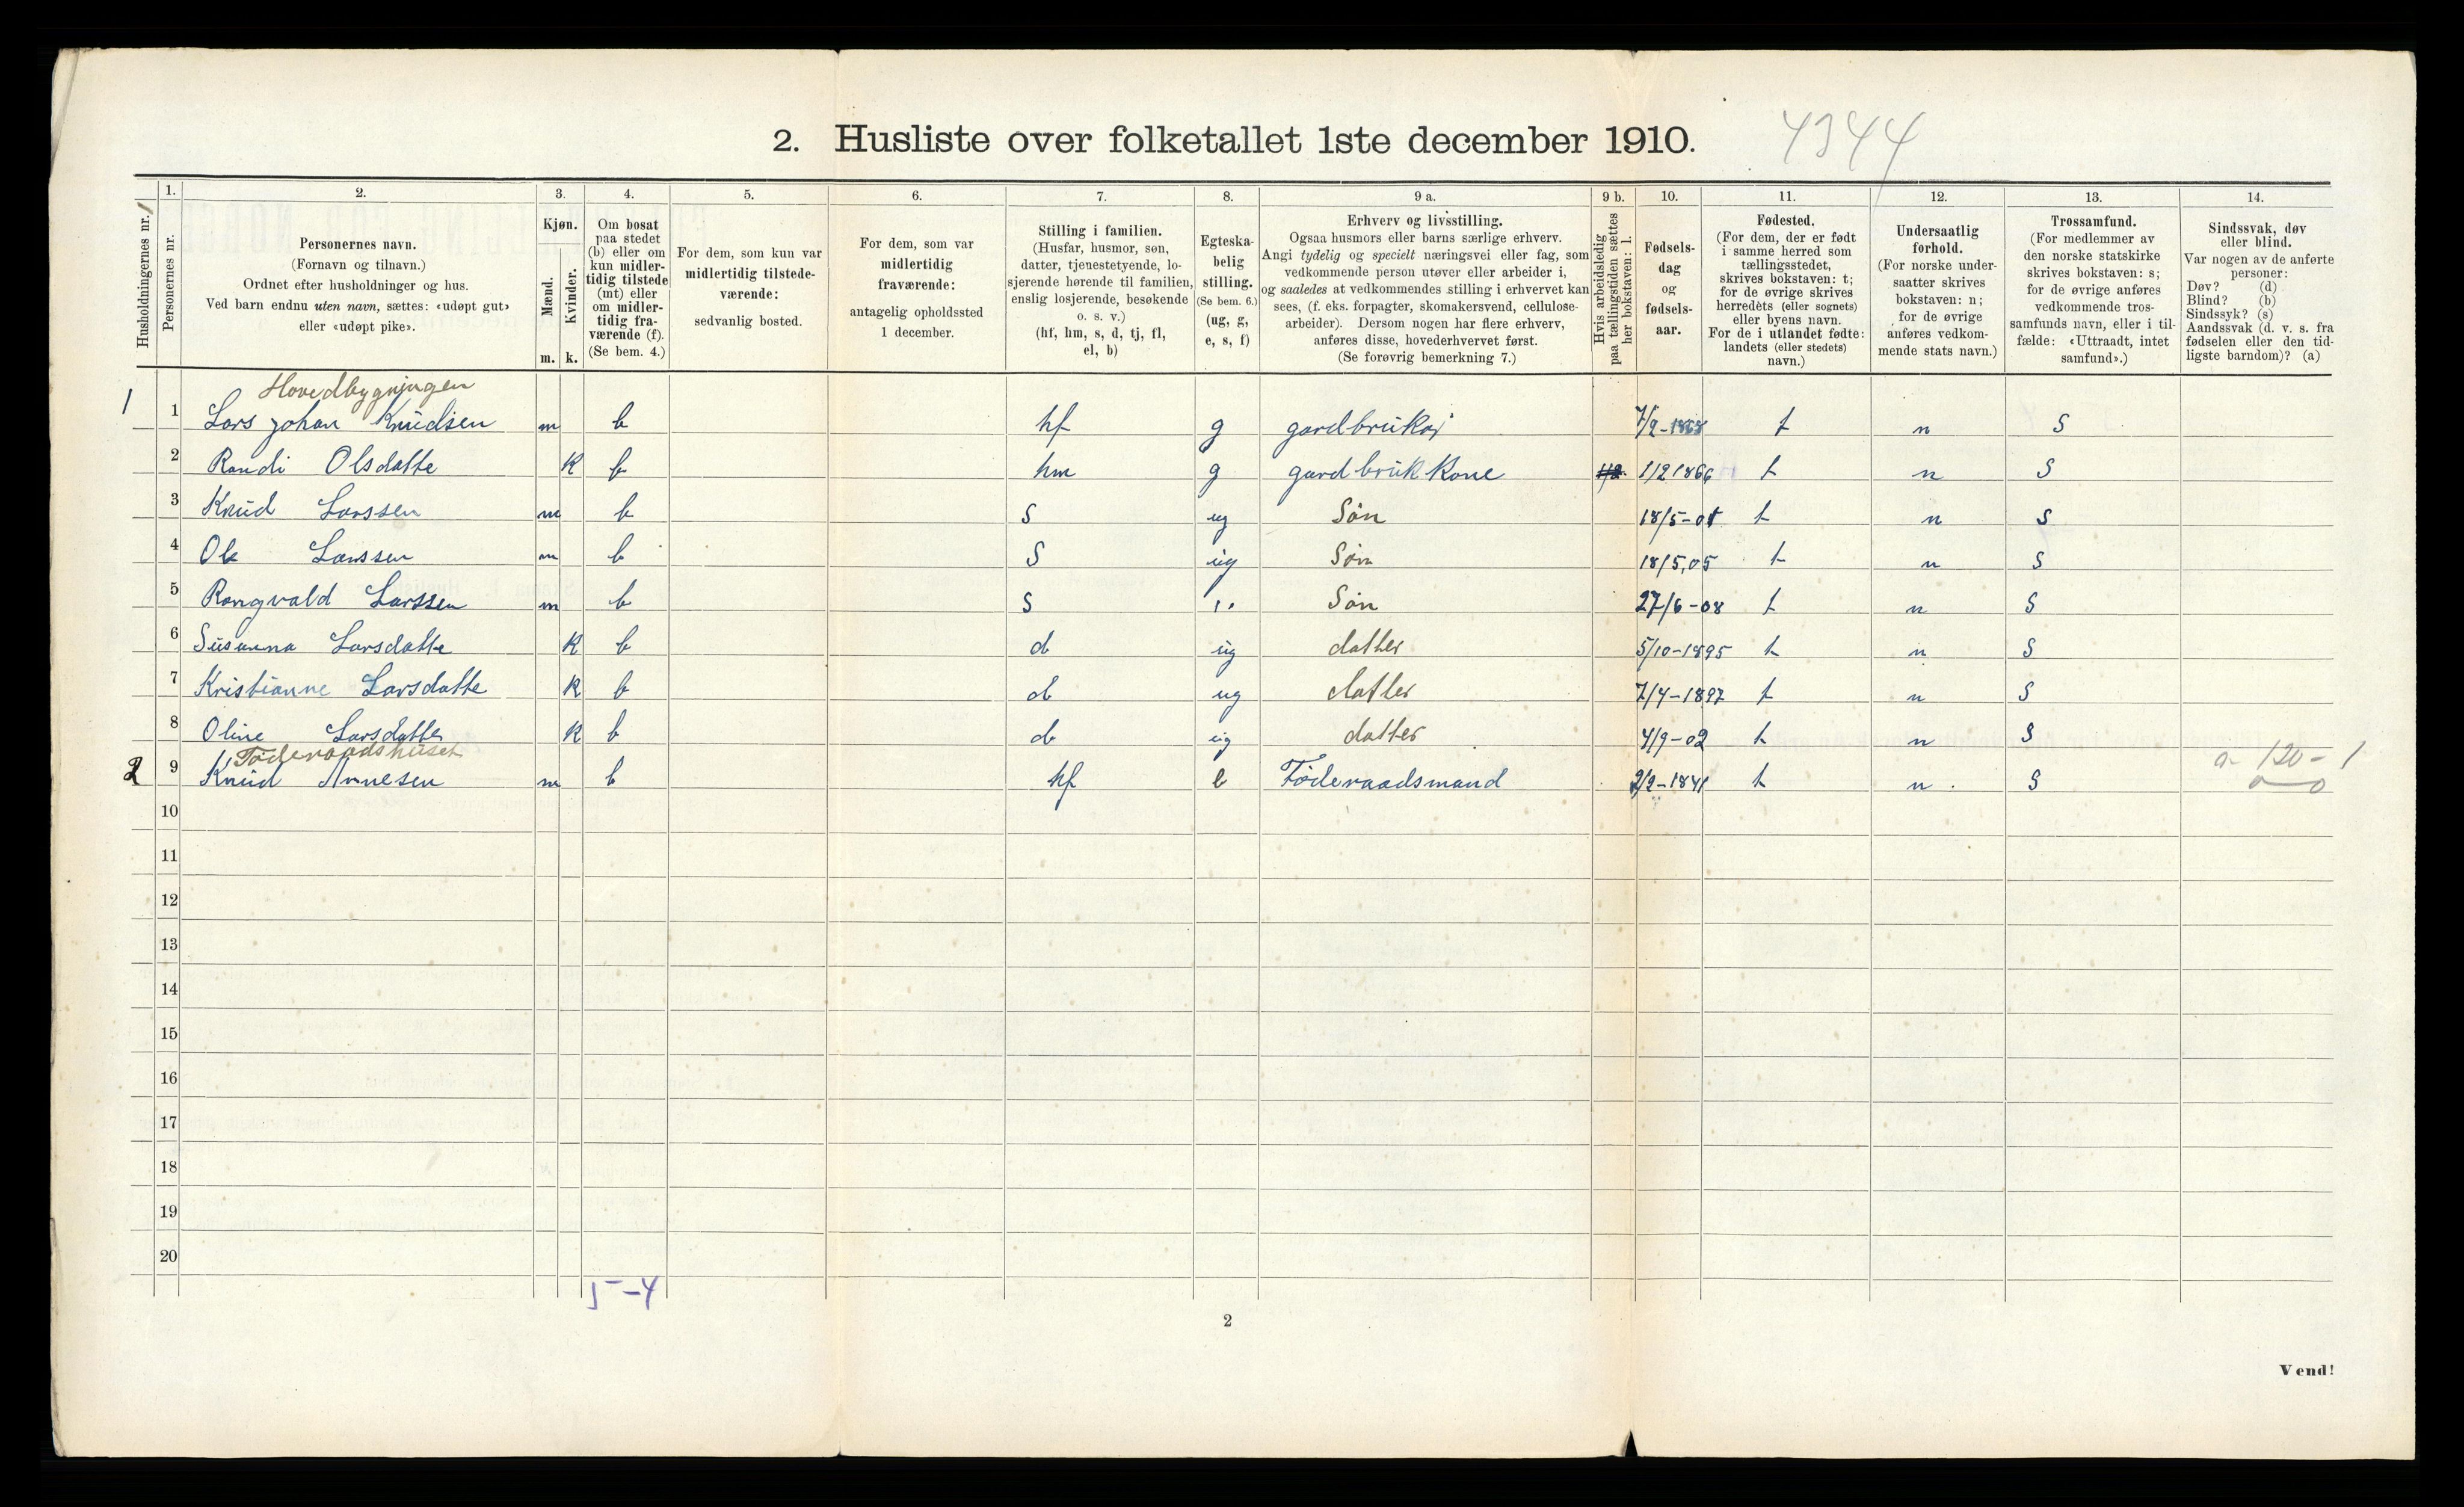 2. Husliste over folketallet 1ste december 1910.
4344
Husholdningernes nr.
1.
Personernes nr.
2.
Personernes navn.
(Fornavn og tilnavn.)
Ordnet efter husholdninger og hus.
Ved barn endnu uten navn, sættes: «udøpt gut»
eller «udøpt pike».
3.
Kjøn.
Mænd.
Kvinder.
m. k.
4.
Om bosat
paa stedet
(b) eller om
kun midler-
tidig tilstede
(mt) eller
om midler-
tidig fra-
værende (f).
(Se bem. 4.)
5.
For dem, som kun var
midlertidig tilstede-
værende:
sedvanlig bosted.
6.
For dem, som var
midlertidig
fraværende:
antagelig opholdssted
1 december.
7.
Stilling i familien.
(Husfar, husmor, søn,
datter, tjenestetyende, lo-
sjerende hørende til familien,
enslig losjerende, besøkende
o. s. v.)
(hf, hm, s, d, tj, fl,
el, b)
8.
Egteska-
belig
stilling.
(Se bem. 6.)
(ug, g,
e, s, f)
9 a.
Erhverv og livsstilling.
Ogsaa husmors eller barns særlige erhverv.
Angi tydelig og specielt næringsvei eller fag, som
vedkommende person utøver eller arbeider i,
og saaledes at vedkommendes stilling i erhvervet kan
sees, (f. eks. forpagter, skomakersvend, cellulose-
arbeider). Dersom nogen har flere erhverv,
anføres disse, hovederhvervet først.
(Se forøvrig bemerkning 7.)
9 b.
Hvis arbeidsledig
paa tællingstiden sættes
her bokstaven: l.
10.
Fødsels-
dag
og
fødsels-
aar.
11.
Fødested.
(For dem, der er født
i samme herred som
tællingsstedet,
skrives bokstaven: t;
for de øvrige skrives
herredets (eller sognets)
eller byens navn.
For de i utlandet fødte:
landets (eller stedets)
navn.)
12.
Undersaatlig
forhold.
(For norske under-
saatter skrives
bokstaven: n;
for de øvrige
anføres vedkom-
mende stats navn.)
13.
Trossamfund.
(For medlemmer av
den norske statskirke
skrives bokstaven: s;
for de øvrige anføres
vedkommende tros-
samfunds navn, eller i til-
fælde: «Uttraadt, intet
samfund».)
14.
Sindssvak, døv
eller blind.
Var nogen av de anførte
personer:
Døv? (d)
Blind? (b)
Sindssyk? (s)
Aandssvak (d. v. s. fra
fødselen eller den tid-
ligste barndom)? (a)
Hovedbygningen
1 1 Lars Johan Knudsen m b hf g gardbruker 7/2-1868 t n S
2 Randi Olsdatte K b hm g gardbruk Kone 1/2 1866 t n S
3 Knud Larssen m b S ug Søn 18/5-01 t n S
4 Ole Larssen m b S ug Søn 18/5,05 t n S
5 Rangvald Larssen m b S " Søn 27/6-08 t n S
6 Susanna Larsdatte K b d ug datter 5/10-1895 t n S
7 Kristianne Larsdatte K b d ug datter 7/4-1897 t n S
8 Oline Larsdatter K b d ug datter 4/9-02 t n S
Føderaadshuset
2 9 Knud Arnesen m b hf e Føderaadsmand 2/2-1841 t n. S
a 120-1
0 0
10
11
12
13
14
15
16
17
18
19
20
5-4
2
Vend!